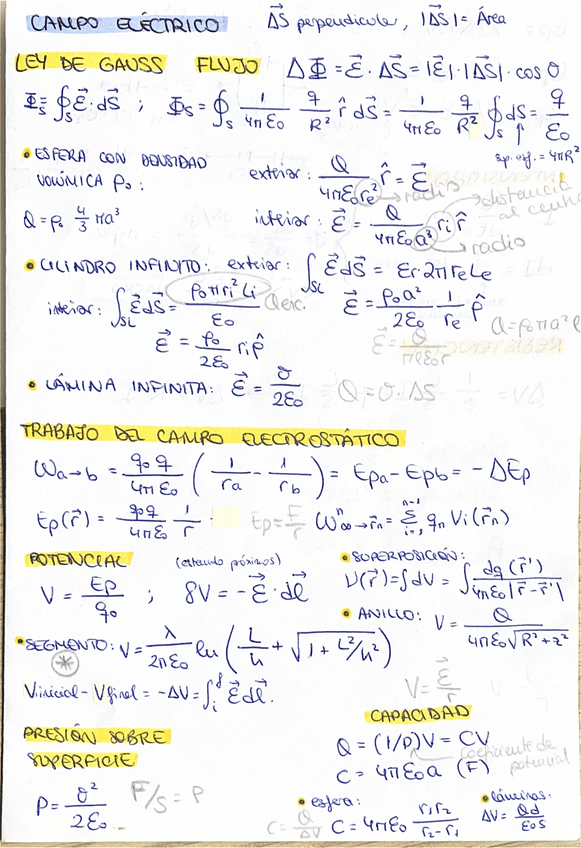 CAMPO ELÉCTRICO
ΔS⃗ perpendicular, |ΔS⃗| = Área
LEY DE GAUSS FLUJO ΔΦ = ε⃗ · ΔS⃗ = |ε⃗|·|ΔS⃗| · cos θ
Φs = ∮s ε⃗·dS⃗ ; Φs = ∮s 1/4πε0 q/R² r̂ dS⃗ = 1/4πε0 q/R² ∮s dS = q/ε0
sp. esf. = 4πR²
• ESFERA CON DENSIDAD VOLÚMICA ρ0:
exterior: Q/4πε0re² r̂ = ε⃗
radio
distancia al centro
Q = ρ0 4/3 πa³
interior: ε⃗ = Q/4πε0a³ ri r̂
radio
• CILINDRO INFINITO: exterior: ∫SL ε⃗dS⃗ = εr·2πreLe
interior: ∫SL ε⃗dS⃗ = ρ0πri²Li/ε0 Qenc. ε⃗ = ρ0a²/2ε0 1/re ρ̂
ε⃗ = ρ0/2ε0 ri ρ̂
Q = ρ0πa²l
• LÁMINA INFINITA: ε⃗ = σ/2ε0 Q = σ·ΔS
TRABAJO DEL CAMPO ELECTROSTÁTICO
ωa→b = q0q/4πε0 (1/ra - 1/rb) = Epa - Epb = -ΔEp
Ep(r⃗) = q0q/4πε0 1/r Ep = E/r ω∞→r⃗n = Σ qn Vi(r⃗n)
POTENCIAL (estando próximos)
V = Ep/q0 ; δV = -ε⃗·dl⃗
• SUPERPOSICIÓN:
V(r⃗) = ∫dV = ∫ dq(r⃗')/4πε0|r⃗-r⃗'|
• ANILLO: V = Q/4πε0√R²+z²
• SEGMENTO: V = λ/2πε0 ln (L/h + √1+L²/h²)
*
Vinicial - Vfinal = -ΔV = ∫if ε⃗dl⃗.
V = ε⃗/r
PRESIÓN SOBRE SUPERFICIE
P = σ²/2ε0 F/S = P
CAPACIDAD
Q = (1/p)V = CV
Coeficiente de potencial
C = 4πε0a (F)
• esfera:
C = Q/ΔV C = 4πε0 r1r2/r2-r1
• láminas:
ΔV = Qd/ε0S